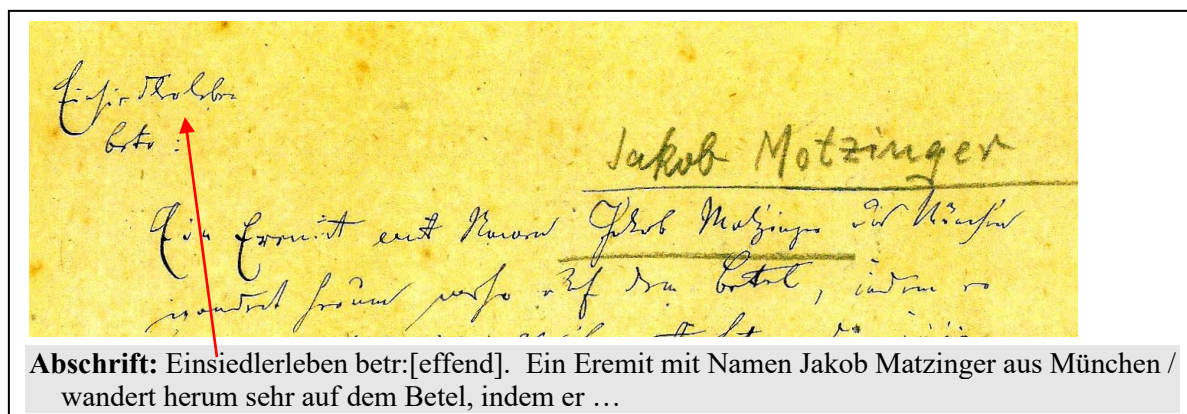 Einsiedlerleben
betr:
Jakob Motzinger
Ein Eremit mit Namen Jakob Matzinger aus München
wandert herum sehr auf dem Betel, indem er
Abschrift: Einsiedlerleben betr:[effend]. Ein Eremit mit Namen Jakob Matzinger aus München /
wandert herum sehr auf dem Betel, indem er …